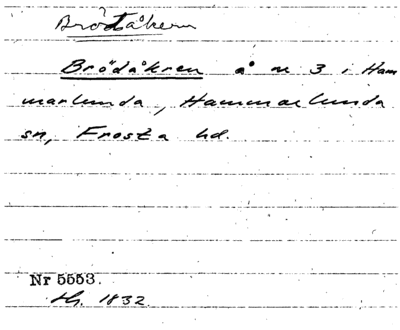 Brödåkern
Brödåkren å n 3 i Ham
marlunda, Hammarlunda
sn, Frosta hd.
Nr 5553.
1832